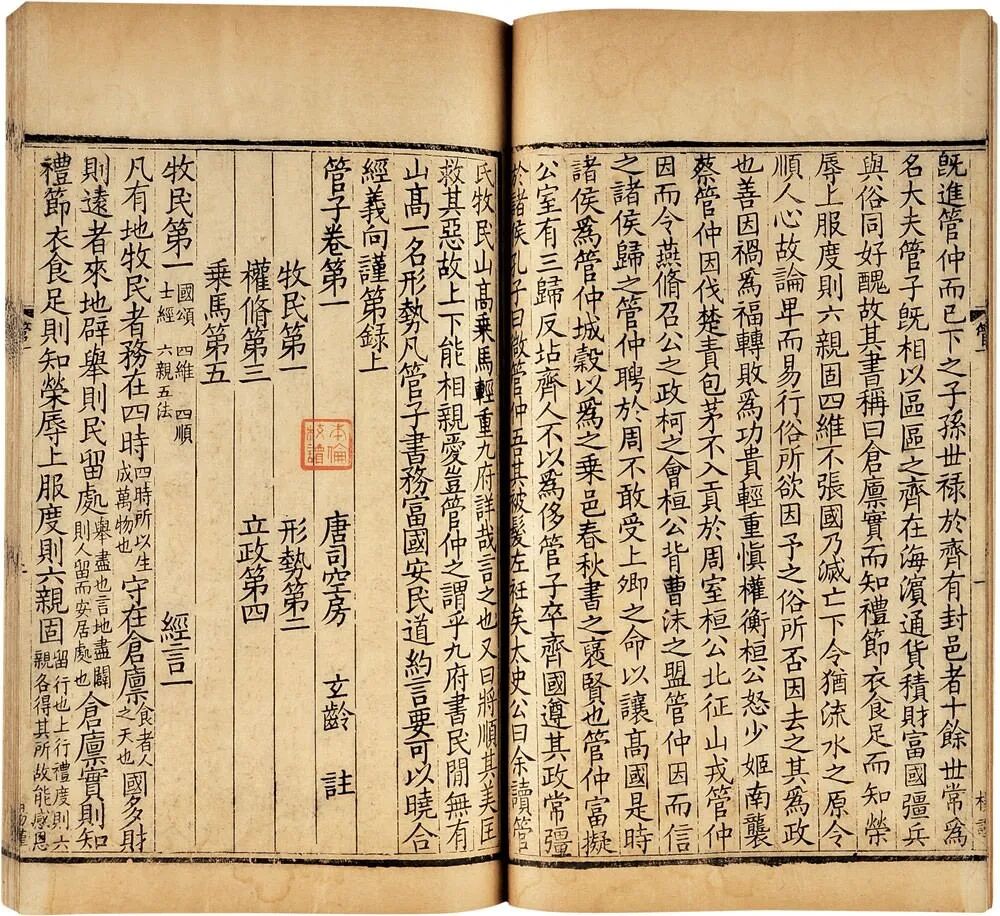 旣進管仲而已下之子孫世禄於齊有封邑者十餘世常爲
名大夫管子旣相以區區之齊在海濵通貨積財富國彊兵
與俗同好醜故其書稱曰倉廪實而知禮節衣食足而知榮
辱上服度則六親固四維不張國乃滅亡下令猶流水之原令
順人心故論卑而易行俗所欲因予之俗所否因去之其爲政
也善因禍爲福轉敗爲功貴輕重慎權衡桓公怒少姬南襲
蔡管仲因伐楚責包茅不入貢於周室桓公北征山戎管仲
因而令燕脩召公之政柯之會桓公背曹沬之盟管仲因而信
之諸侯歸之管仲聘於周不敢受上卿之命以讓高國是時
諸侯爲管仲城穀以爲之乗邑春秋書之襃賢也管仲富擬
公室有三歸反坫齊人不以爲侈管子卒齊國遵其政常彊
於諸侯孔子曰微管仲吾其被髮左衽矣太史公曰余讀管
氏牧民山高乗馬輕重九府詳哉言之也又曰將順其美匡
救其惡故上下能相親愛豈管仲之謂乎九府書民閒無有
山高一名形勢凡管子書務富國安民道約言要可以曉合
經義向謹第録上
管子卷第一 唐司空房 玄齡 註
牧民第一 形勢第二
權脩第三 立政第四
乗馬第五
牧民第一 國頌 四維 四順 士經 六親五法 經言一
凡有地牧民者務在四時四時所以生成萬物也守在倉廪食者人之天也國多財
則遠者來地辟舉則民留處舉盡也言地盡闢則人留而安居處也倉廪實則知
禮節衣食足則知榮辱上服度則六親固服行也上行禮度則六親各得其所故能感恩
管一